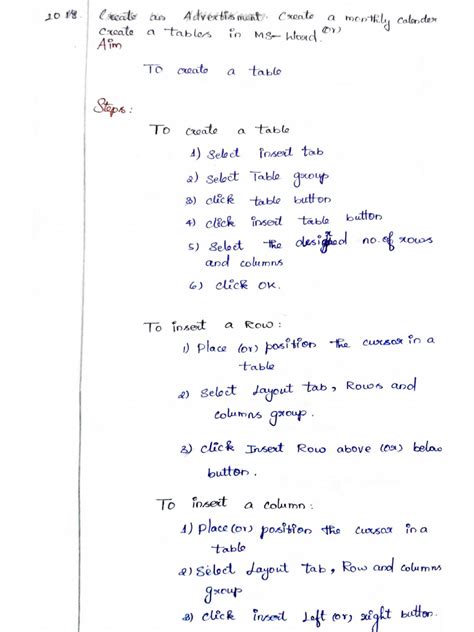 20 18. Create an Advertisment Create a monthly calender
Create a tables in MS-Word. (or)
Aim
To create a table
Steps:
To create a table
1) Select insert tab
2) Select Table group
3) click table button
4) click insert table button
5) Select the designed no. of rows
and columns
6) click OK.
To insert a Row:
1) Place (or) position the cursor in a
table
2) Select Layout tab, Rows and
columns group.
3) click Insert Row above (or) below
button.
To insert a column:
1) Place (or) position the cursor in a
table
2) Select Layout tab, Row and columns
group
3) click insert Left (or) right button.